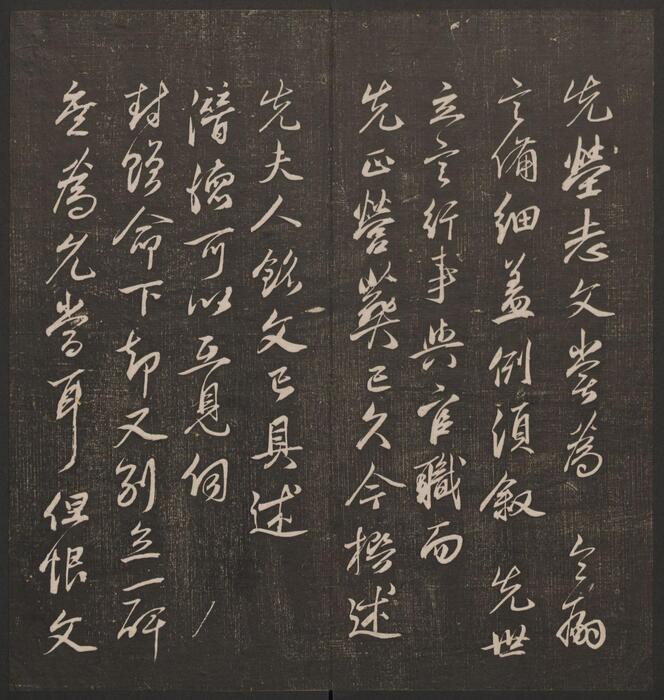 先塋志文嘗為 令嗣
言備細蓋例須叙 先世
立言行事與官職而
先正營葬已久今撰述
先夫人銘文已具述
潛德可以互見伺
封贈命下却又別立一碑
為允當耳但恨文